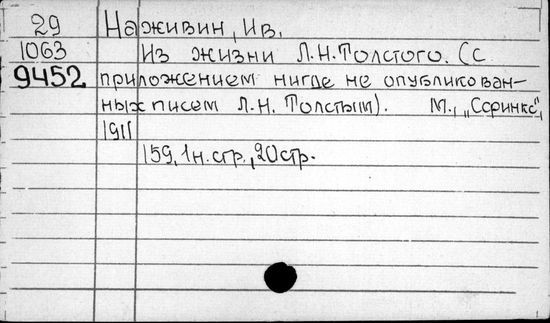 29 Наживин, Ив.
1063 Из жизни Л.Н.Толстого. (с
9452 приложением нигде не опубликован-
ных писем Л.Н. Толстым). М., „Сфринкс",
1911
159, 1н.стр., 20стр.